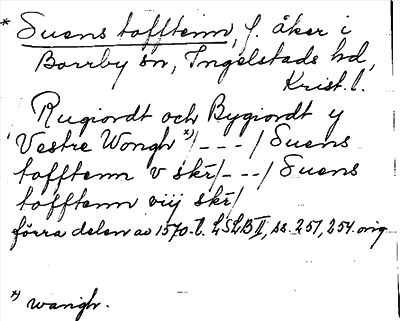 * Suens tofftenn, f. åker i
Borrby sn, Ingelstads hd,
Krist. l.
Rugiordt och Bygiordt y
Vestre Wongh *)/---/ Suens
tofftenn v skr/---/ Suens
tofftenn viij skr/
förra delen av 1570. t. LSLB II, ss. 251, 254. orig
*) wangh.